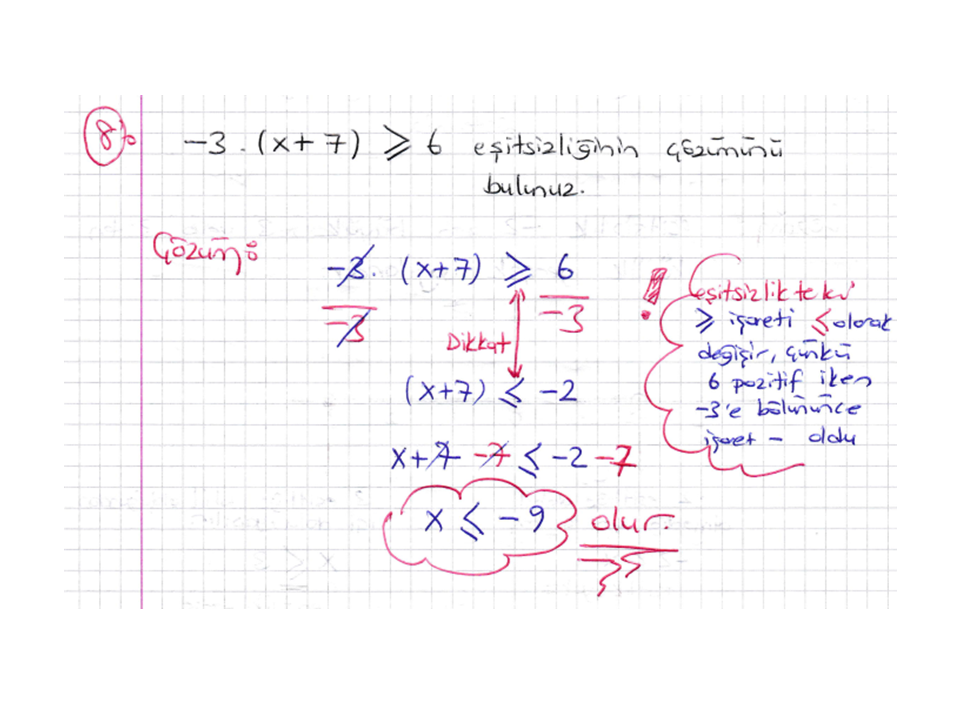 8)
-3 . (x + 7) ⩾ 6 eşitsizliğinin çözümünü
bulunuz.
Çözüm:
-3 . (x+7) ⩾ 6
-3 -3
Dikkat
(x+7) ⩽ -2
x+7 -7 ⩽ -2 -7
x ⩽ -9 olur.
! eşitsizlikteki
⩾ işareti ⩽ olarak
değişir, çünkü
6 pozitif iken
-3'e bölününce
işaret - oldu